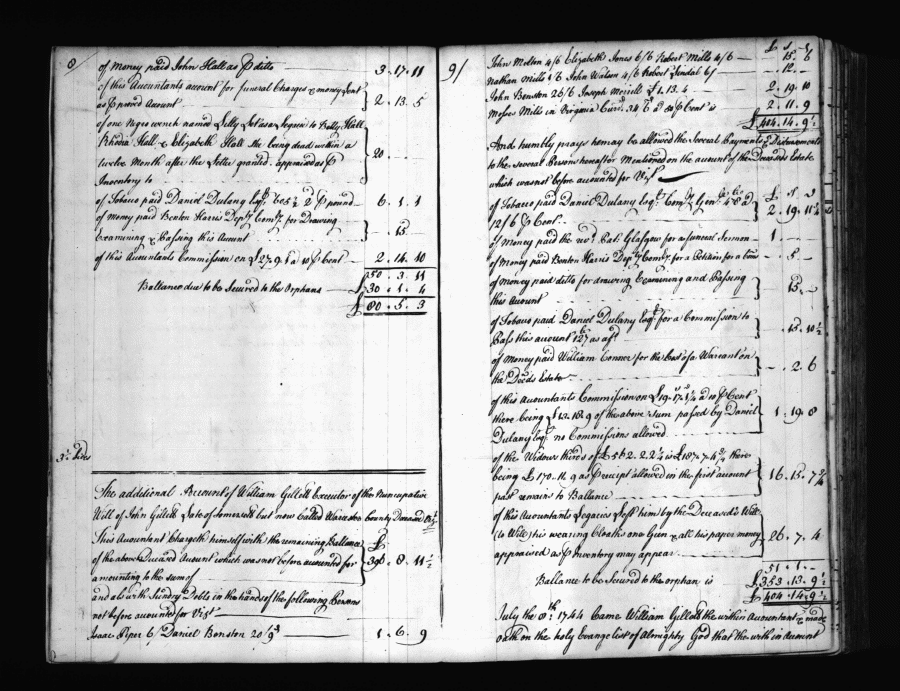 8
of Money paid John Hall as ⅌ ditto 3 . 17 . 11
of this Accountants account for funeral Charges & money Lent
as ⅌ proved Account 2 . 13 . 5
of one Negro wench named
Rhodia Hall & Elizabeth Hall she being dead within a
twelve Month after the Letts granted appraised as ⅌ 20 . - . -
Inventory to
of Tobacco paid Daniel Dulany Esqr. ⅌ pound 6 . 1 . 1
of money paid Benton Harris Depty Comry. for Drawing
Examining & Passing this Account - . 15 . -
of this Accountants Commission on £27 . 9 . 1 a 10 ⅌ Cent 2 . 14 . 10
50 . 3 . 11
Ballance due to be Secured to the Orphans £30 . 1 . 4
£80 . 5 . 3
The additional Account of William Gillett Executor of the Nuncupative
Will of John Gillett Late of Somersett but now Called Worcester County Deceased
This Accountant Chargeth himself with the remaining Ballance £
of the above Deceased Account which was not before accounted for 396 . 8 . 11½
amounting to the sum of
and also with Sundry Debts in the hands of the following Persons
not before accounted for Vizt
Isaac Piper 6/ Daniel Bonston 20/9 1 . 6 . 9
9/
£ S D
John Molton 4/6 Elizabeth Jones 6/6 Robert Mills 4/6 15 . 6
Nathan Mills John Watson 4/6 Robert 6/ - . 12 . -
John Bonston 26/6 Joseph Morrill £1 . 13 . 4 2 . 19 . 10
Moses Mills in Virginia Curr. ⅌ Cent is 2 . 11 . 9
£404 . 14 . 9½
And humbly prays he may be allowed the Several Payments & Disbursements
to the several Persons hereafter Mentioned on the account of the Deceaseds Estate
which was not before accounted for Vizt
£ S D
of Tobacco paid Daniel Dulany Esqr. Comry. Genl.
12/6 ⅌ Cent. 2 . 19 . 11¼
of Money paid the revd. Patk. Glasgow for a funeral Sermon 1 . - . -
of Money paid Benton Harris Depty Comry. for a Petition for a - . 5 . -
of money paid ditto for drawing Examining and Passing
this Account 15 . -
of Tobacco paid Daniel Dulany Esqr. for a Commission to
Pass this account 127 as aft. - . 15 . 10½
of Money paid William Conner for the Cost of a Warrant on
the Deceds Estate - . 2 . 6
of this Accountants Commission on £19 . 17 . 1¼ a 10 ⅌ Cent
there being £13 . 18 . 9 of the above sum passed by Daniel 1 . 19 . 8
Dulany Esqr. no Commissions allowed
3d. Sides
of the Widows thirds of £562 . 2 . 2¼ is £187 . 7 . 4¾ there
being £170 . 11 . 9 as ⅌ receipt allowed in the first account 16 . 15 . 7¾
past remains to Ballance
of this Accountants Legacies Left him by the Deceased's Will
(to Wit) his wearing Cloaths one Gun & all his paper money 26 . 7 . 4
appraised as ⅌ Inventory may appear
51 . 1 . -
Ballance to be Secured to the orphan is £353 . 13 . 9½
£404 . 14 . 9½
July the 8th: 1744 Came William Gillett the within Accountant & made
oath on the holy Evangelist of Almighty God that the within Account